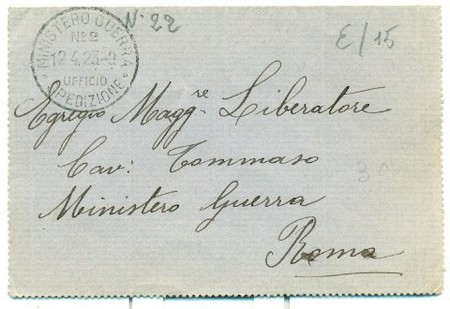 N. 22
E/15
MINISTERO GUERRA
No 2
12.4.23-9
UFFICIO
SPEDIZIONE
Egregio Magg.re Liberatore
Cav: Tommaso
Ministero Guerra
Roma